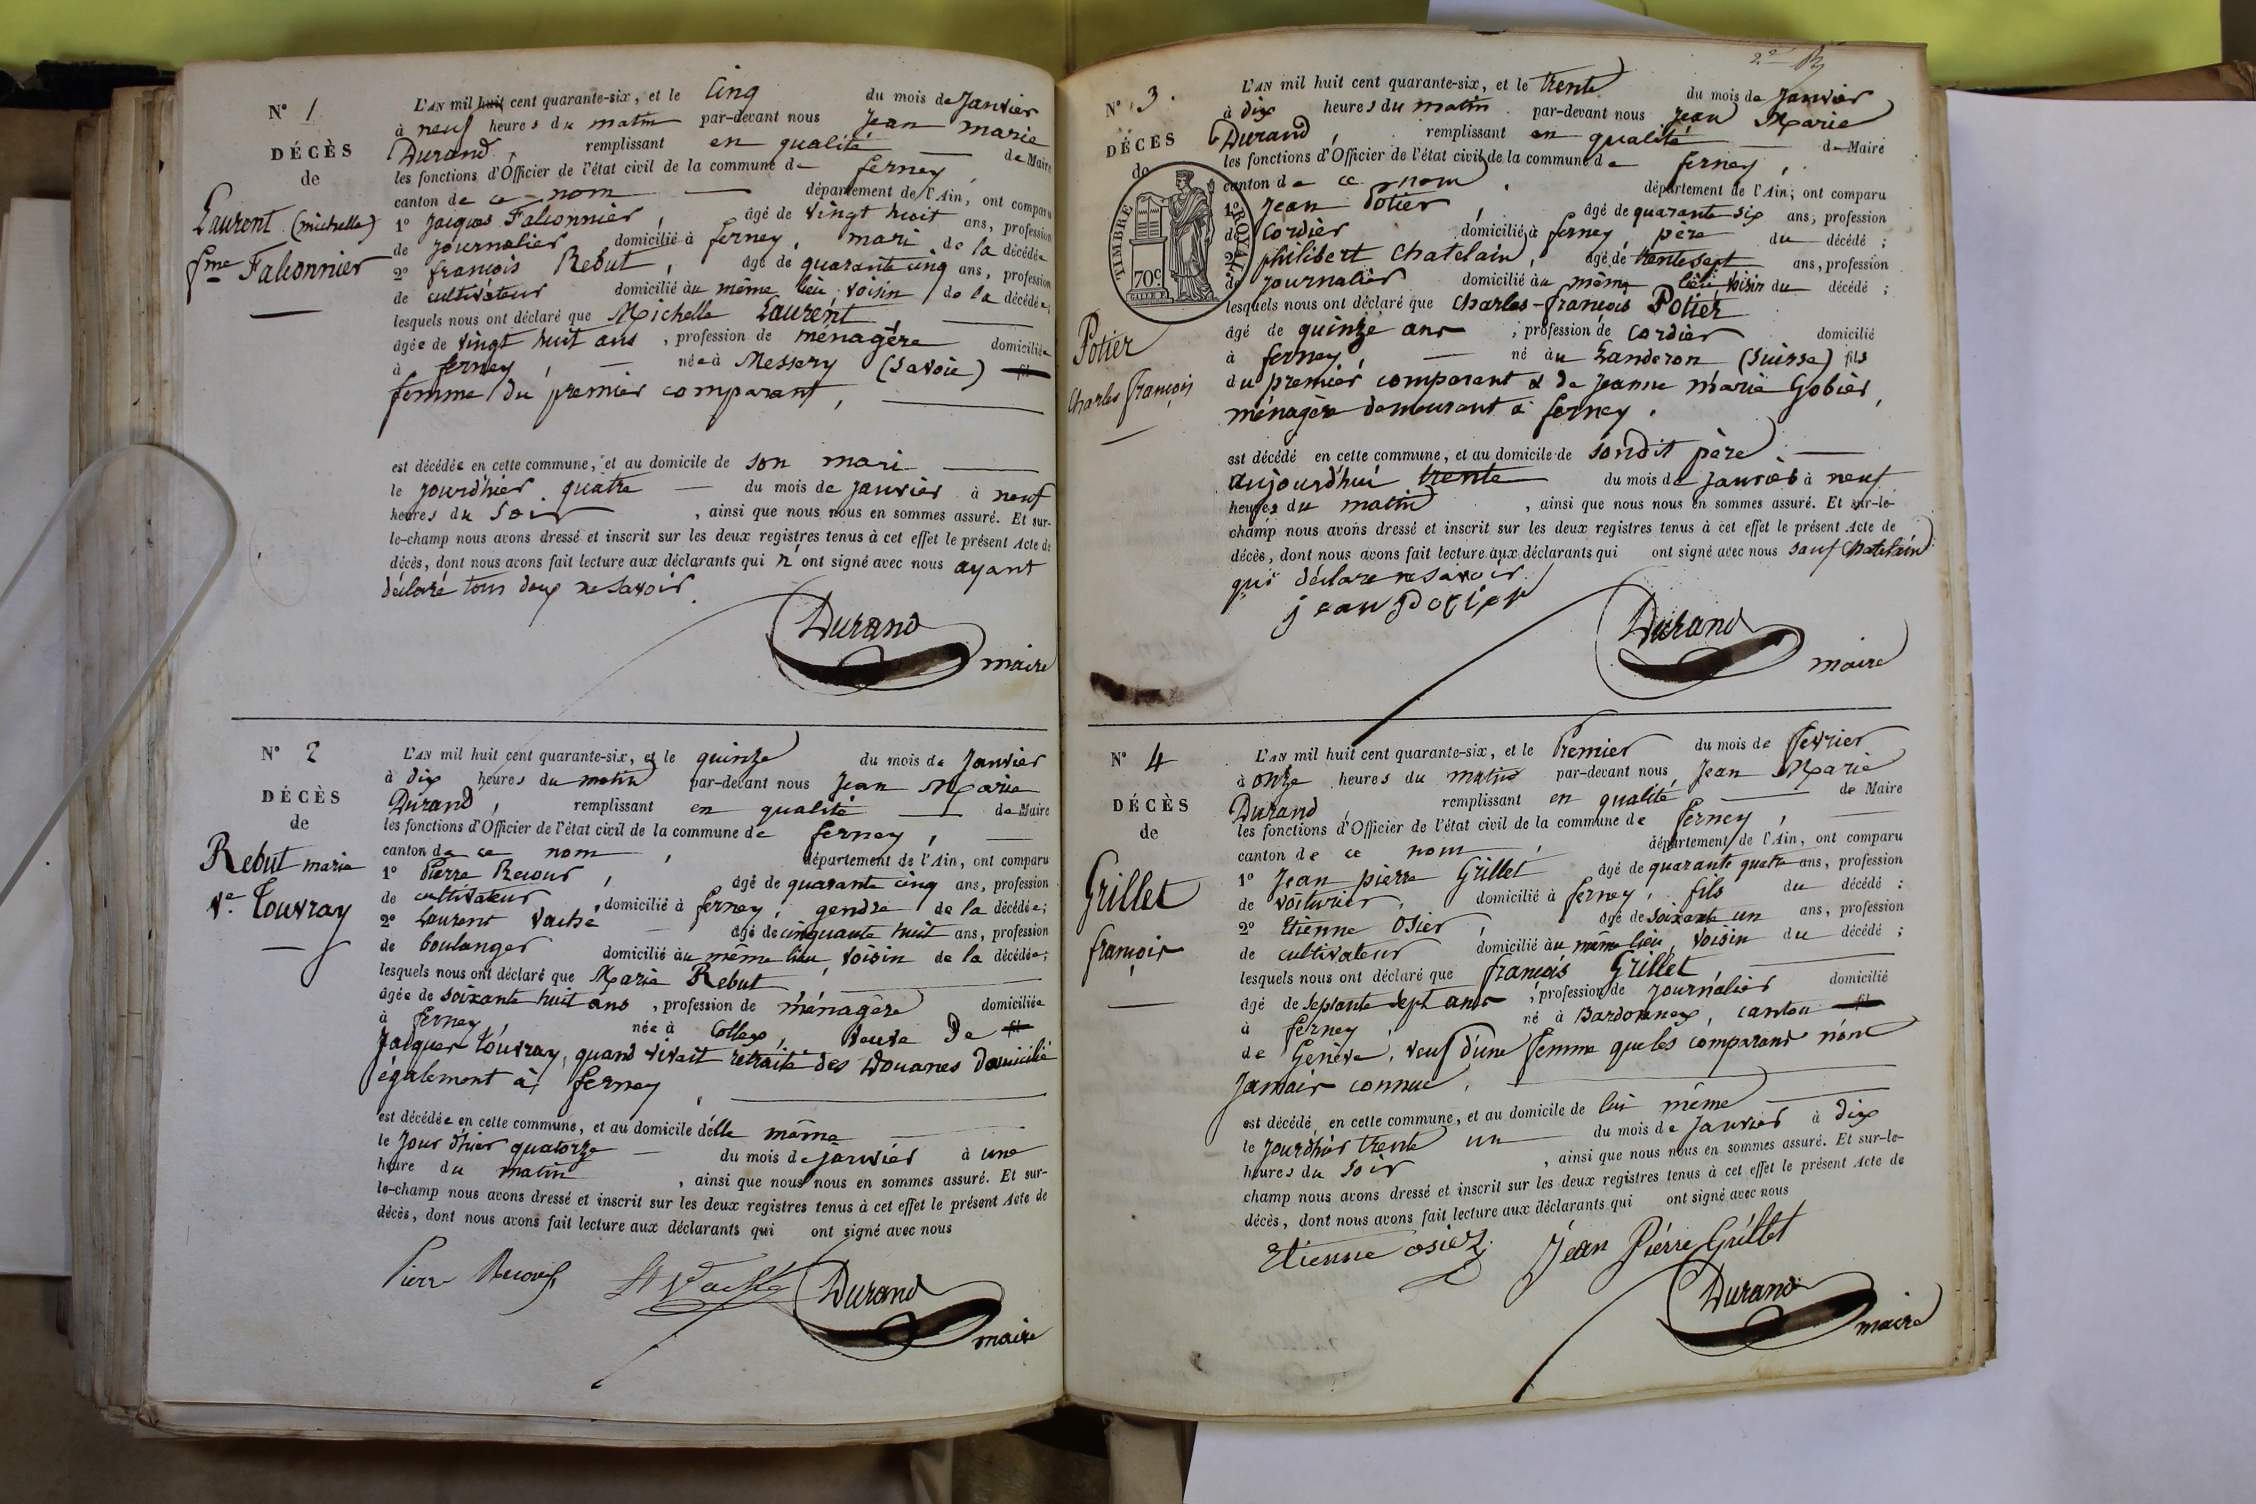 N° 1
DÉCÈS
de
Laurent (michelle)
fme Falionnier
L'AN mil huit cent quarante-six, et le Cinq du mois de Janvier
à neuf heures du matin par-devant nous Jean marie
Durand, remplissant en qualité de Maire
les fonctions d'Officier de l'état civil de la commune de ferney,
canton de ce nom département de l'Ain, ont comparu
1° Jacques Falionnier, âgé de vingt huit ans, profession
de journalier domicilié à ferney, mari de la décédée
2° françois Rebut, âgé de quarante cinq ans, profession
de cultivateur domicilié au même lieu voisin de la décédée;
lesquels nous ont déclaré que Michelle Laurent,
âgée de vingt huit ans, profession de ménagère domiciliée
à ferney, née à Messery (Savoie) fil
femme du premier comparant,
est décédée en cette commune, et au domicile de son mari
le jourd'hier quatre du mois de janvier à neuf
heures du Soir, ainsi que nous nous en sommes assuré. Et sur-
le-champ nous avons dressé et inscrit sur les deux registres tenus à cet effet le présent Acte de
décès, dont nous avons fait lecture aux déclarants qui n'ont signé avec nous ayant
déclaré tous deux ne savoir.
Durand
maire
N° 2
DÉCÈS
de
Rebut marie
Ve. Touvray
L'AN mil huit cent quarante-six, et le quinze du mois de Janvier
à dix heures du matin par-devant nous Jean Marie
Durand, remplissant en qualité de Maire
les fonctions d'Officier de l'état civil de la commune de ferney,
canton de ce nom, département de l'Ain, ont comparu
1° Pierre Recour, âgé de quarante cinq ans, profession
de cultivateur, domicilié à ferney, gendre de la décédée;
2° Laurent Vache âgé de cinquante huit ans, profession
de boulanger domicilié au même lieu, voisin de la décédée;
lesquels nous ont déclaré que Marie Rebut,
âgée de soixante huit ans, profession de ménagère domiciliée
à ferney née à Collex, veuve De fil
Jacques Touvray, quand vivait retraité des Douanes domicilié
également à ferney,
est décédée en cette commune, et au domicile d'elle même
le jour d'hier quatorze du mois de janvier à une
heure du matin, ainsi que nous nous en sommes assuré. Et sur-
le-champ nous avons dressé et inscrit sur les deux registres tenus à cet effet le présent Acte de
décès, dont nous avons fait lecture aux déclarants qui ont signé avec nous
Pierre Durand
maire
2e
N° 3.
DÉCÈS
de
TIMBRE ROYAL
70c
Potier
Charles françois
L'AN mil huit cent quarante-six, et le trente du mois de Janvier
à dix heures du matin par-devant nous Jean Marie
Durand, remplissant en qualité de Maire
les fonctions d'Officier de l'état civil de la commune de ferney,
canton de ce nom, département de l'Ain; ont comparu
1° Jean Potier, âgé de quarante six ans, profession
de Cordier domicilié à ferney, père du décédé;
2° philibert Chatelain, âgé de trente sept ans, profession
de journalier domicilié au même lieu, voisin du décédé;
lesquels nous ont déclaré que Charles-françois Potier
âgé de quinze ans, profession de Cordier domicilié
à ferney, né au Landeron (Suisse) fils
du premier comparant & de Jeanne marie Gobier,
ménagère demeurant à ferney.
est décédé en cette commune, et au domicile de son dit père
aujourd'hui trente du mois de janvier à neuf
heures du matin, ainsi que nous nous en sommes assuré. Et sur-le-
champ nous avons dressé et inscrit sur les deux registres tenus à cet effet le présent Acte de
décès, dont nous avons fait lecture aux déclarants qui ont signé avec nous sauf Chatelain
qui déclare ne savoir.
jean Potier
Durand
maire
N° 4
DÉCÈS
de
Grillet
françois
L'AN mil huit cent quarante-six, et le Premier du mois de fevrier
à onze heures du matin par-devant nous, Jean Marie
Durand, remplissant en qualité de Maire
les fonctions d'Officier de l'état civil de la commune de ferney,
canton de ce nom, département de l'Ain, ont comparu
1° Jean pierre Grillet âgé de quarante quatre ans, profession
de voiturier, domicilié à ferney, fils du décédé:
2° Etienne Osier, âgé de soixante un ans, profession
de cultivateur domicilié au même lieu, voisin du décédé;
lesquels nous ont déclaré que françois Grillet
âgé de septante sept ans, profession de journalier domicilié
à ferney, né à Bardonnex, canton fil
de Genève, veuf d'une femme que les comparans n'ont
Jamais connue,
est décédé en cette commune, et au domicile de lui même
le jourd'hier trente un du mois de janvier à dix
heures du Soir, ainsi que nous nous en sommes assuré. Et sur-le-
champ nous avons dressé et inscrit sur les deux registres tenus à cet effet le présent Acte de
décès, dont nous avons fait lecture aux déclarants qui ont signé avec nous
Etienne osiez Jean Pierre Grillet
Durand
maire